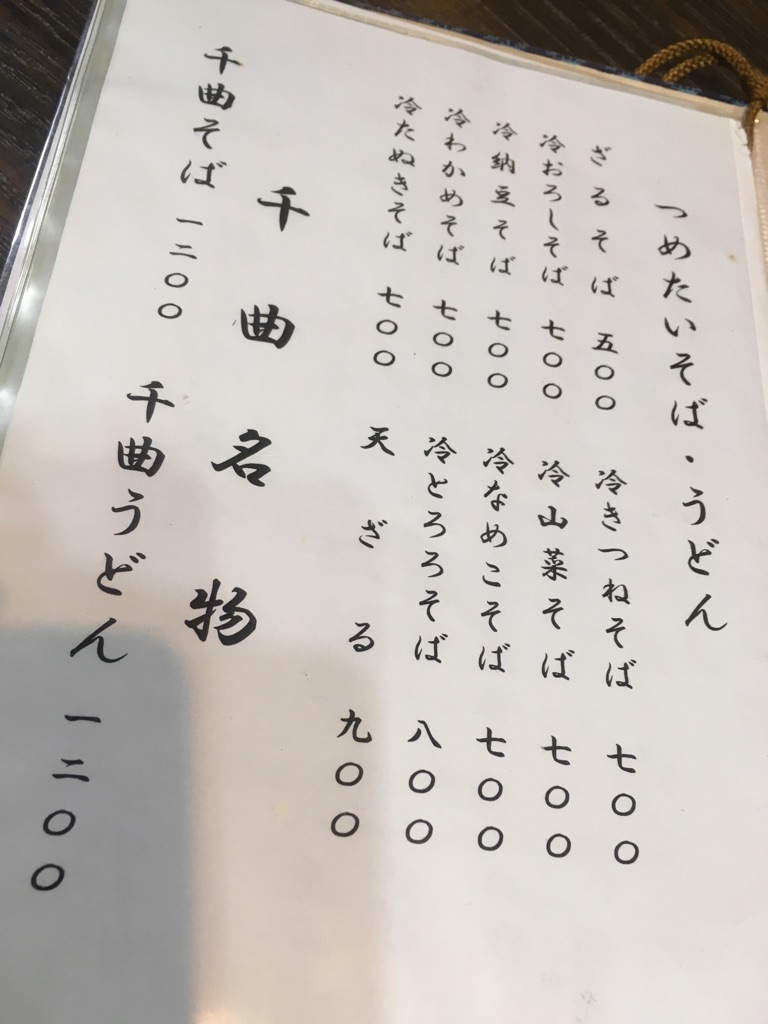 つめたいそば・うどん
ざるそば 五〇〇
冷きつねそば 七〇〇
冷おろしそば 七〇〇
冷山菜そば 七〇〇
冷納豆そば 七〇〇
冷なめこそば 七〇〇
冷わかめそば 七〇〇
冷とろろそば 八〇〇
冷たぬきそば 七〇〇
天ざる 九〇〇
千曲名物
千曲そば 一二〇〇
千曲うどん 一二〇〇